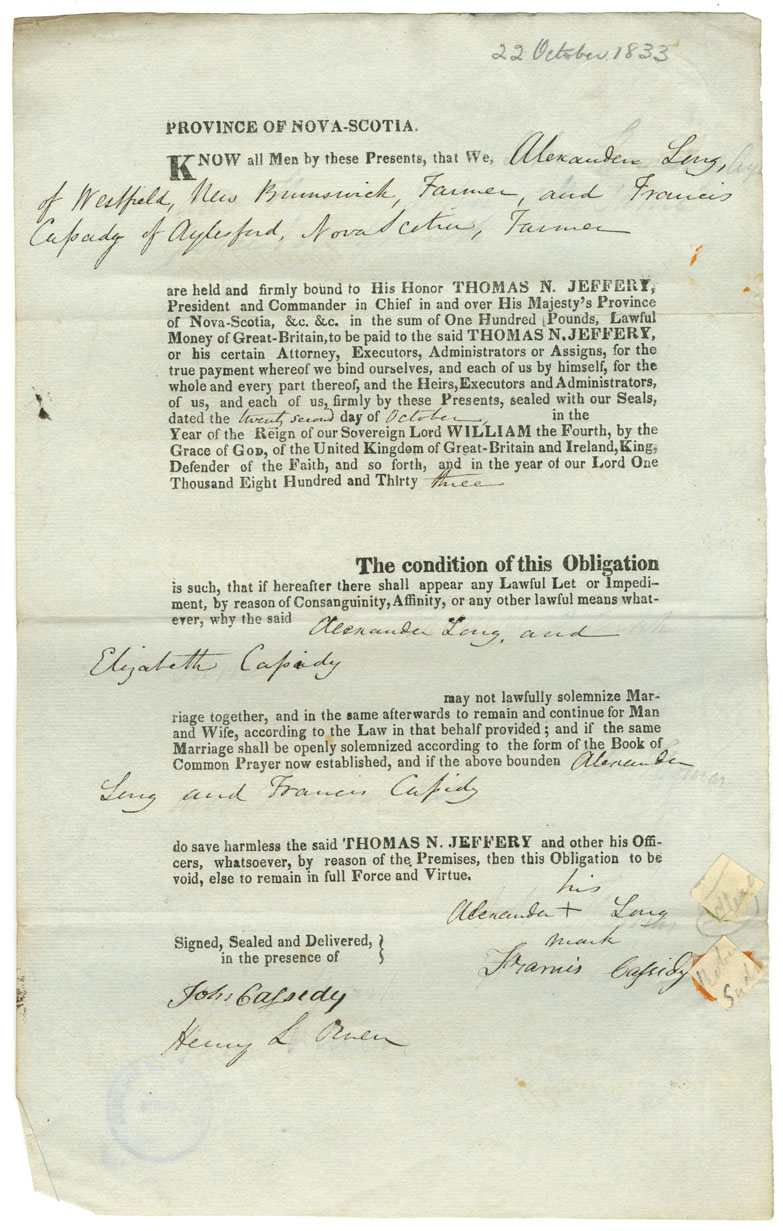 22 October 1833
PROVINCE OF NOVA-SCOTIA.
KNOW all Men by these Presents, that We, Alexander Long,
of Westfield, New Brunswick, Farmer, and Francis
Caſsidy of Aylesford, Nova Scotia, Farmer
are held and firmly bound to His Honor THOMAS N. JEFFERY,
President and Commander in Chief in and over His Majesty's Province
of Nova-Scotia, &c. &c. in the sum of One Hundred Pounds, Lawful
Money of Great-Britain, to be paid to the said THOMAS N. JEFFERY,
or his certain Attorney, Executors, Administrators or Assigns, for the
true payment whereof we bind ourselves, and each of us by himself, for the
whole and every part thereof, and the Heirs, Executors and Administrators,
of us, and each of us, firmly by these Presents, sealed with our Seals,
dated the twenty second day of October, in the
Year of the Reign of our Sovereign Lord WILLIAM the Fourth, by the
Grace of GOD, of the United Kingdom of Great-Britain and Ireland, King,
Defender of the Faith, and so forth, and in the year of our Lord One
Thousand Eight Hundred and Thirty three
The condition of this Obligation
is such, that if hereafter there shall appear any Lawful Let or Impedi-
ment, by reason of Consanguinity, Affinity, or any other lawful means what-
ever, why the said Alexander Long, and
Elizabeth Caſsidy
may not lawfully solemnize Mar-
riage together, and in the same afterwards to remain and continue for Man
and Wife, according to the Law in that behalf provided; and if the same
Marriage shall be openly solemnized according to the form of the Book of
Common Prayer now established, and if the above bounden Alexander
Long and Francis Caſsidy
do save harmless the said THOMAS N. JEFFERY and other his Offi-
cers, whatsoever, by reason of the Premises, then this Obligation to be
void, else to remain in full Force and Virtue.
his
Alexander + Long
mark
Signed, Sealed and Delivered, }
in the presence of
Francis Caſsidy
John Caſsedy
Henry L Owen